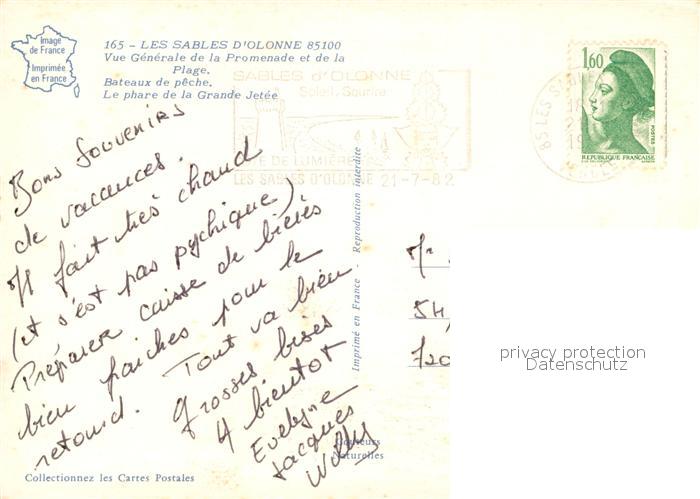 Image
de France
Imprimée
en France
165 - LES SABLES D'OLONNE 85100
Vue Générale de la Promenade et de la
Plage.
Bateaux de pêche.
Le phare de la Grande Jetée
SABLES d'OLONNE
Soleil, Sourire
DE LUMIÈRE
LES SABLES D'OLONNE 21-7-82
85 LES SABLES
1,60
POSTES
REPUBLIQUE FRANÇAISE
Bons Souvenirs
de vacances.
Il fait très chaud
(et s'est pas psychique)
Préparer caisse de bières
bien fraiches pour le
retour. Tout va bien
grosses bises
A bientot
Evelyne
Jacques
Willy
Imprimé en France - Reproduction interdite
Mr
54,
720
privacy protection
Datenschutz
Couleurs
Naturelles
Collectionnez les Cartes Postales